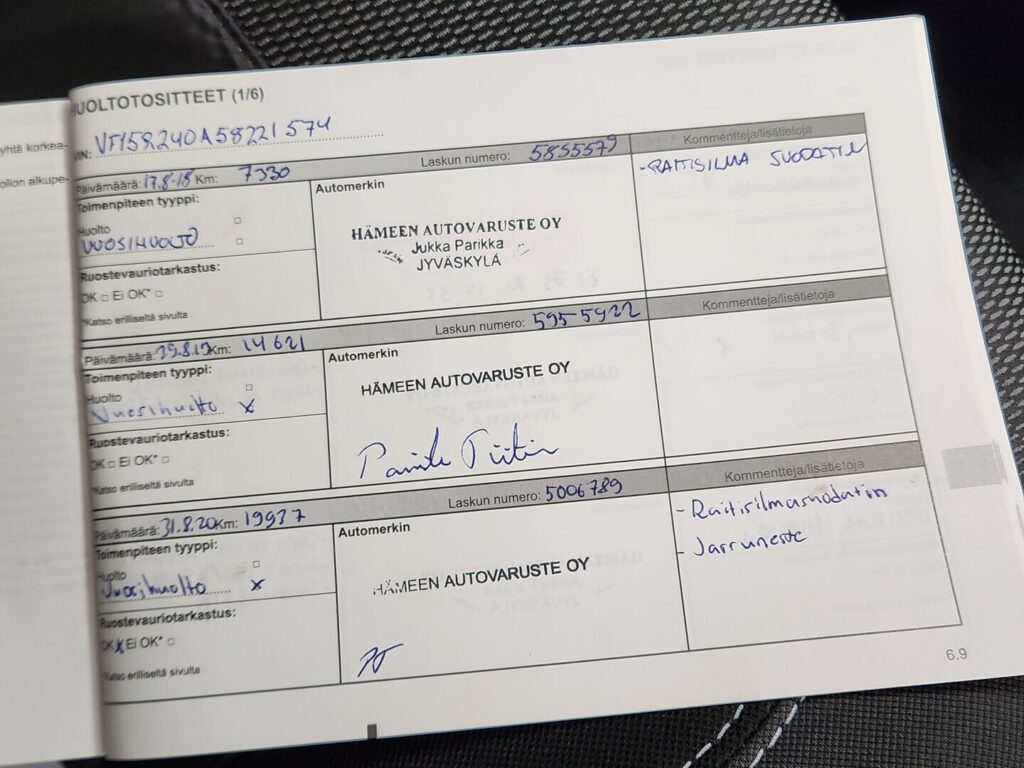 yhtä korkea-
olion alkupe-
HUOLTOTOSITTEET (1/6)
VIN: VF15R240A58221574
Päivämäärä: 17.8-18 Km: 7330 Laskun numero: 5855579 Kommentteja/lisätietoja
Toimenpiteen tyyppi:
Huolto
VUOSIHUOLTO
Ruostevauriotarkastus:
OK □ Ei OK* □
*Katso erilliseltä sivulta
Automerkin
HÄMEEN AUTOVARUSTE OY
Jukka Parikka
JYVÄSKYLÄ
-RAITISILMA SUODATIN
Päivämäärä: 29.8.19 Km: 14621 Laskun numero: 5955922 Kommentteja/lisätietoja
Toimenpiteen tyyppi:
Huolto
Vuosihuolto x
Ruostevauriotarkastus:
OK □ Ei OK* □
*Katso erilliseltä sivulta
Automerkin
HÄMEEN AUTOVARUSTE OY
Päivämäärä: 31.8.20 Km: 19937 Laskun numero: 5006789 Kommentteja/lisätietoja
Toimenpiteen tyyppi:
Huolto
Vuosihuolto x
Ruostevauriotarkastus:
OK x Ei OK* □
*Katso erilliseltä sivulta
Automerkin
HÄMEEN AUTOVARUSTE OY
- Raitisilmasuodatin
- Jarruneste
6.9